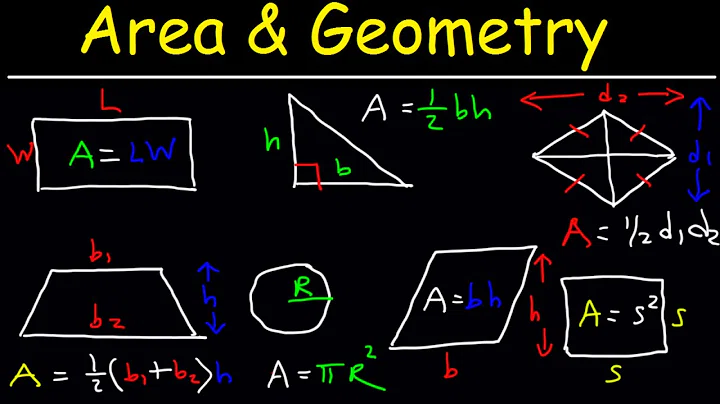 Area & Geometry
L
W
A = LW
h
b
A = 1/2 bh
d2
d1
A = 1/2 d1 d2
b1
b2
h
A = 1/2 (b1 + b2) h
R
A = πR²
A = bh
h
b
A = s²
s
s